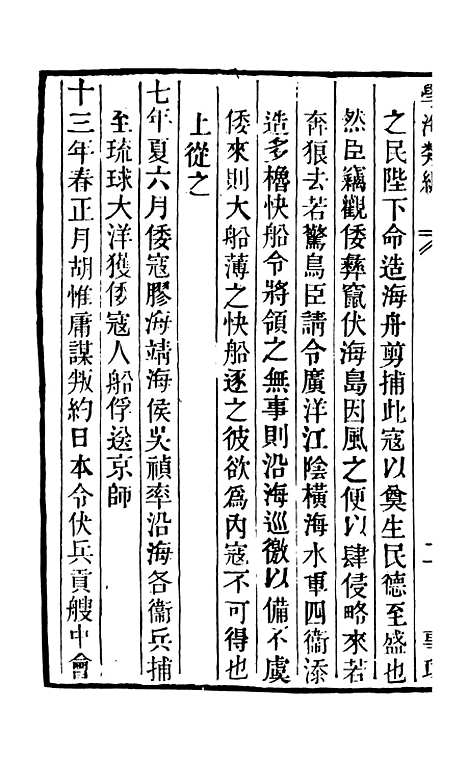 學海類編
二
之民陛下命造海舟剪捕此寇以奠生民德至盛也
然臣竊觀倭彝竄伏海島因風之便以肆侵略來若
奔狼去若驚鳥臣請令廣洋江陰橫海水軍四衞添
造多櫓快船令將領之無事則沿海巡徼以備不虞
倭來則大船薄之快船逐之彼欲爲內寇不可得也
上從之
七年夏六月倭寇膠海靖海侯吳禎率沿海各衞兵捕
至琉球大洋獲倭寇人船俘送京師
十三年春正月胡惟庸謀叛約日本令伏兵貢艘中會